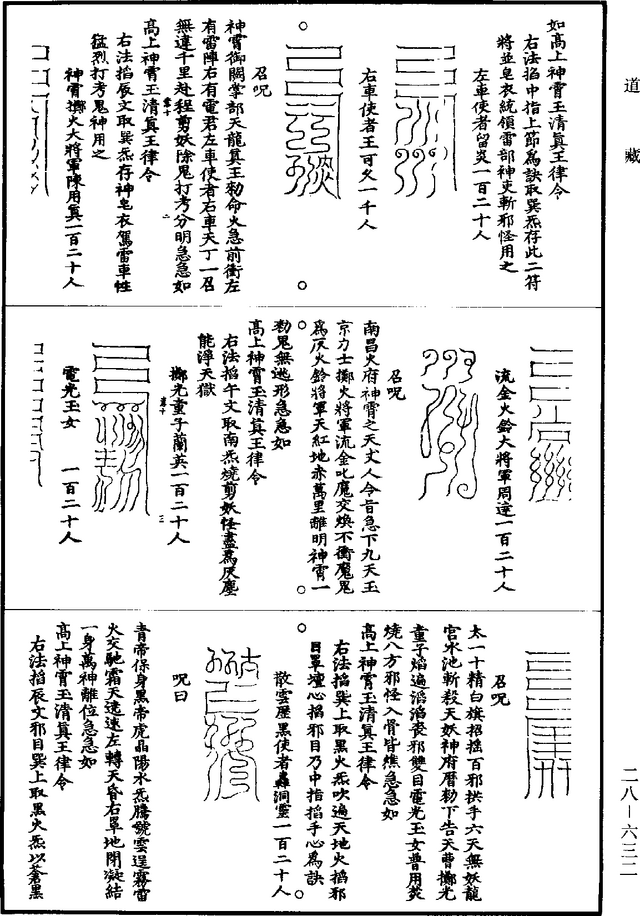 道藏
如高上神霄玉清真王律令
右法掐中指上節爲訣取巽炁存此二符
將並皂衣統領雷部神吏斬邪怪用之
左車使者留炎一百二十人
右車使者王可久一千人
召呪
神霄御闕掌部天龍真王勑命火急前衝左
有雷陣右有電君左車使者右車天丁一召
無違千里赴程剪妖除鬼打考分明急急如
高上神霄玉清真王律令
右法掐辰文取巽炁存神皂衣駕雷車性
猛烈打考鬼神用之
神霄擲火大將軍陳用真一百二十人
流金火鈴大將軍周達一百二十人
召呪
南昌火府神霄之天丈人令旨急下九天玉
京力士擲火將軍流金叱魔交煥不衝魔鬼
爲灰火鈴將軍天紅地赤萬里離明神霄一
勑鬼無逃形急急如
高上神霄玉清真王律令
右法掐午文取南炁燒剪妖怪盡爲灰塵
能浄天獄
擲光童子蘭英一百二十人
電光玉女 一百二十人
召呪
太一十精白旗招搖百邪拱手六天無妖龍
宮水池斬殺天妖神府曆勑下告天曹擲光
童子焰遍滔滔喪邪雙目電光玉女普用炎
燒八方邪怪入骨皆燋急急如
高上神霄玉清真王律令
右法掐巽上取黑火炁吹遍天地火掐邪
目罩壇心掐邪目乃中指掐手心爲訣
散雲歷黑使者轟洞靈一百二十人
呪曰
青帝保身黑帝虎晶陽水炁騰號雲逞霧雷
火交馳霜天遶速左轉天昏右罩地閉凝結
一身萬神離位急急如
高上神霄玉清真王律令
右法掐辰文邪目巽上取黑火炁以蒼黑
二八—六三二